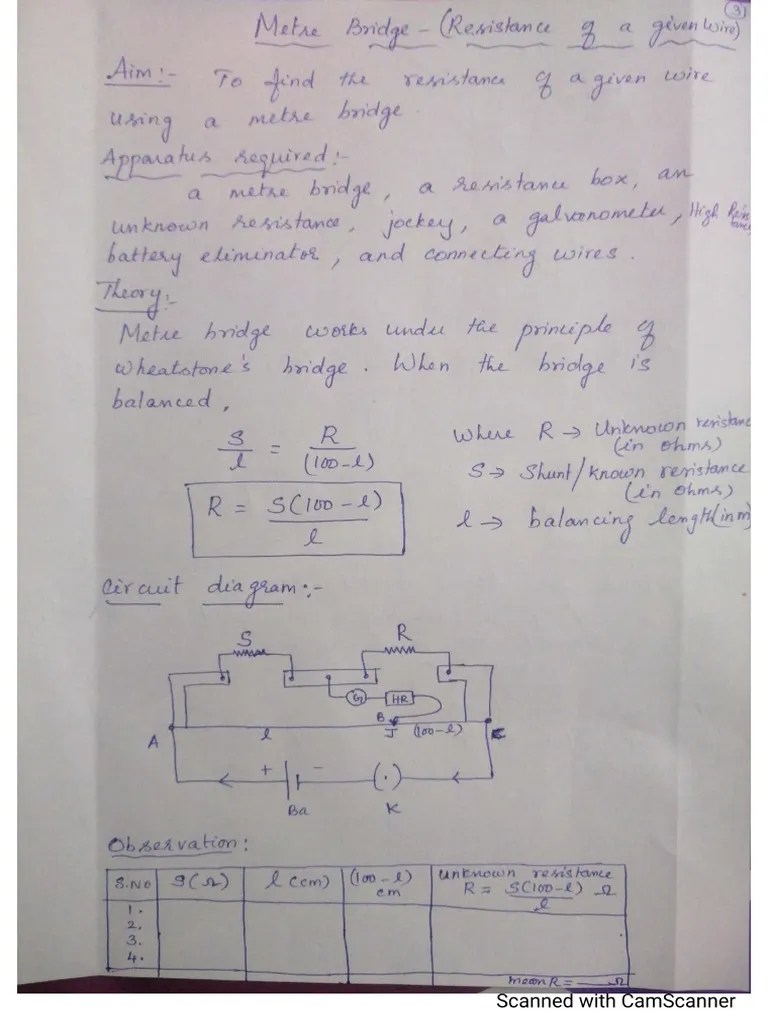 3
Metre Bridge - (Resistance of a given wire)
Aim:- To find the resistance of a given wire
using a metre bridge
Apparatus required:-
a metre bridge, a resistance box, an
unknown resistance, jockey, a galvonometer, High
battery eliminator, and connecting wires.
Theory:-
Metre bridge works under the principle of
wheatstone's bridge. When the bridge is
balanced,
S/l = R/(100-l)
where R → Unknown resistance
(in ohms)
S → Shunt/known resistance
(in ohms)
R = S(100-l)/l
l → balancing length (in m)
Circuit diagram:-
S R
G HR
B
A l J (100-l) C
+ -
Ba K
Observation:
S.No S(Ω) l (cm) (100-l) cm Unknown resistance R = S(100-l)/l Ω
1.
2.
3.
4.
mean R = ___ Ω
Scanned with CamScanner